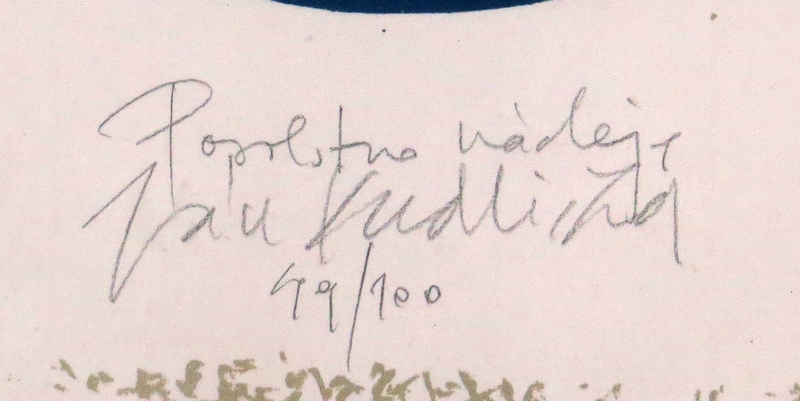 Posolstvo nádeje
Ján Kudlička
49/100